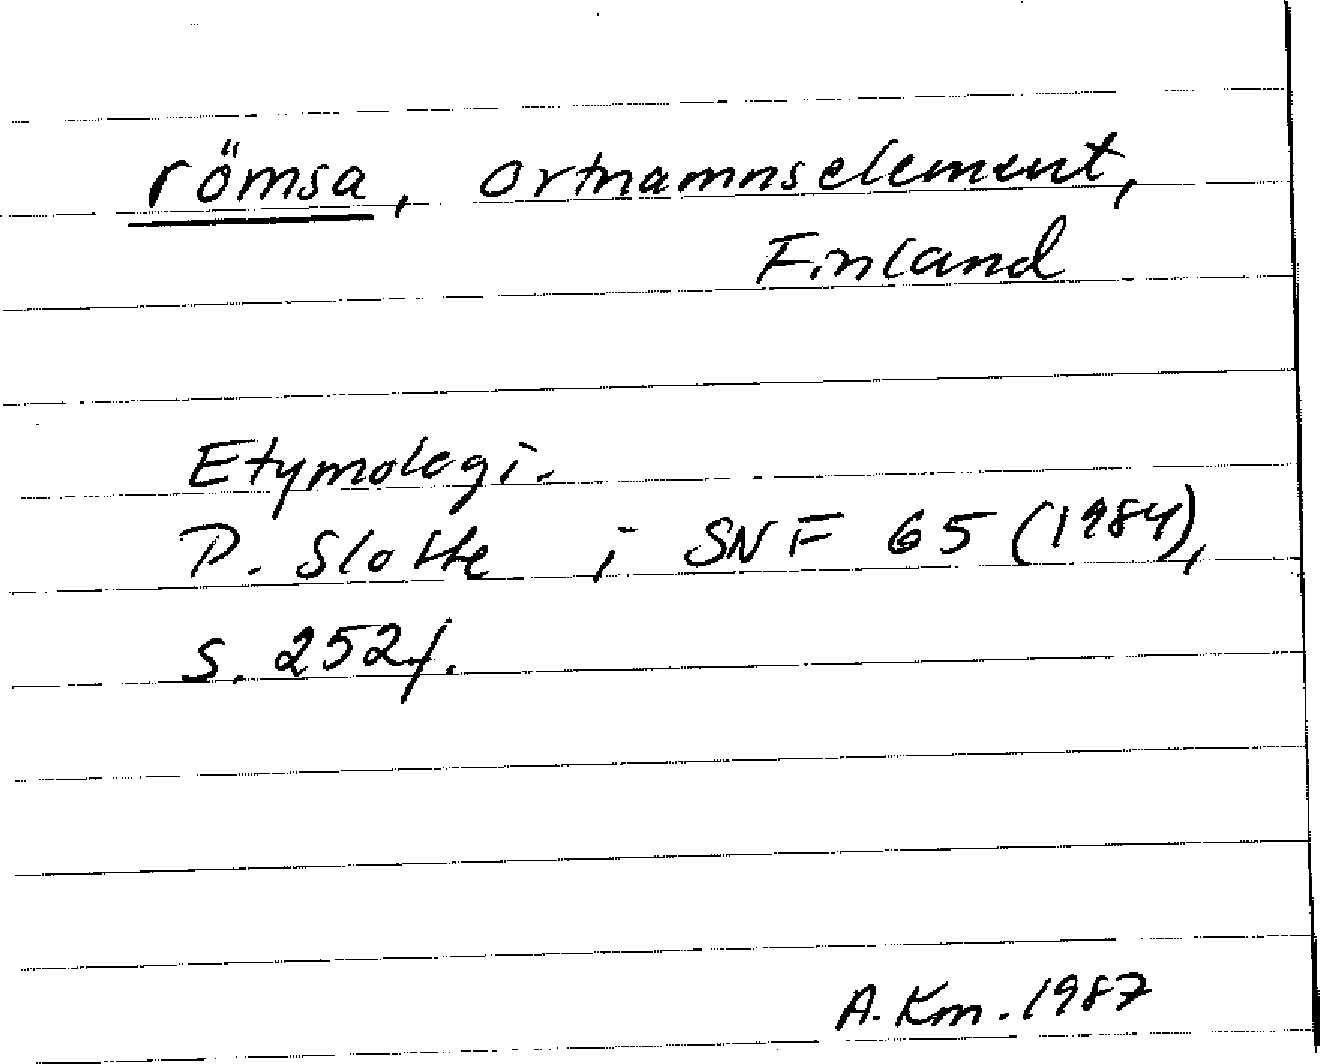 römsa, ortnamnselement,
Finland
Etymologi.
P. Slotte i SNF 65 (1984),
s. 252f.
A. Km. 1987